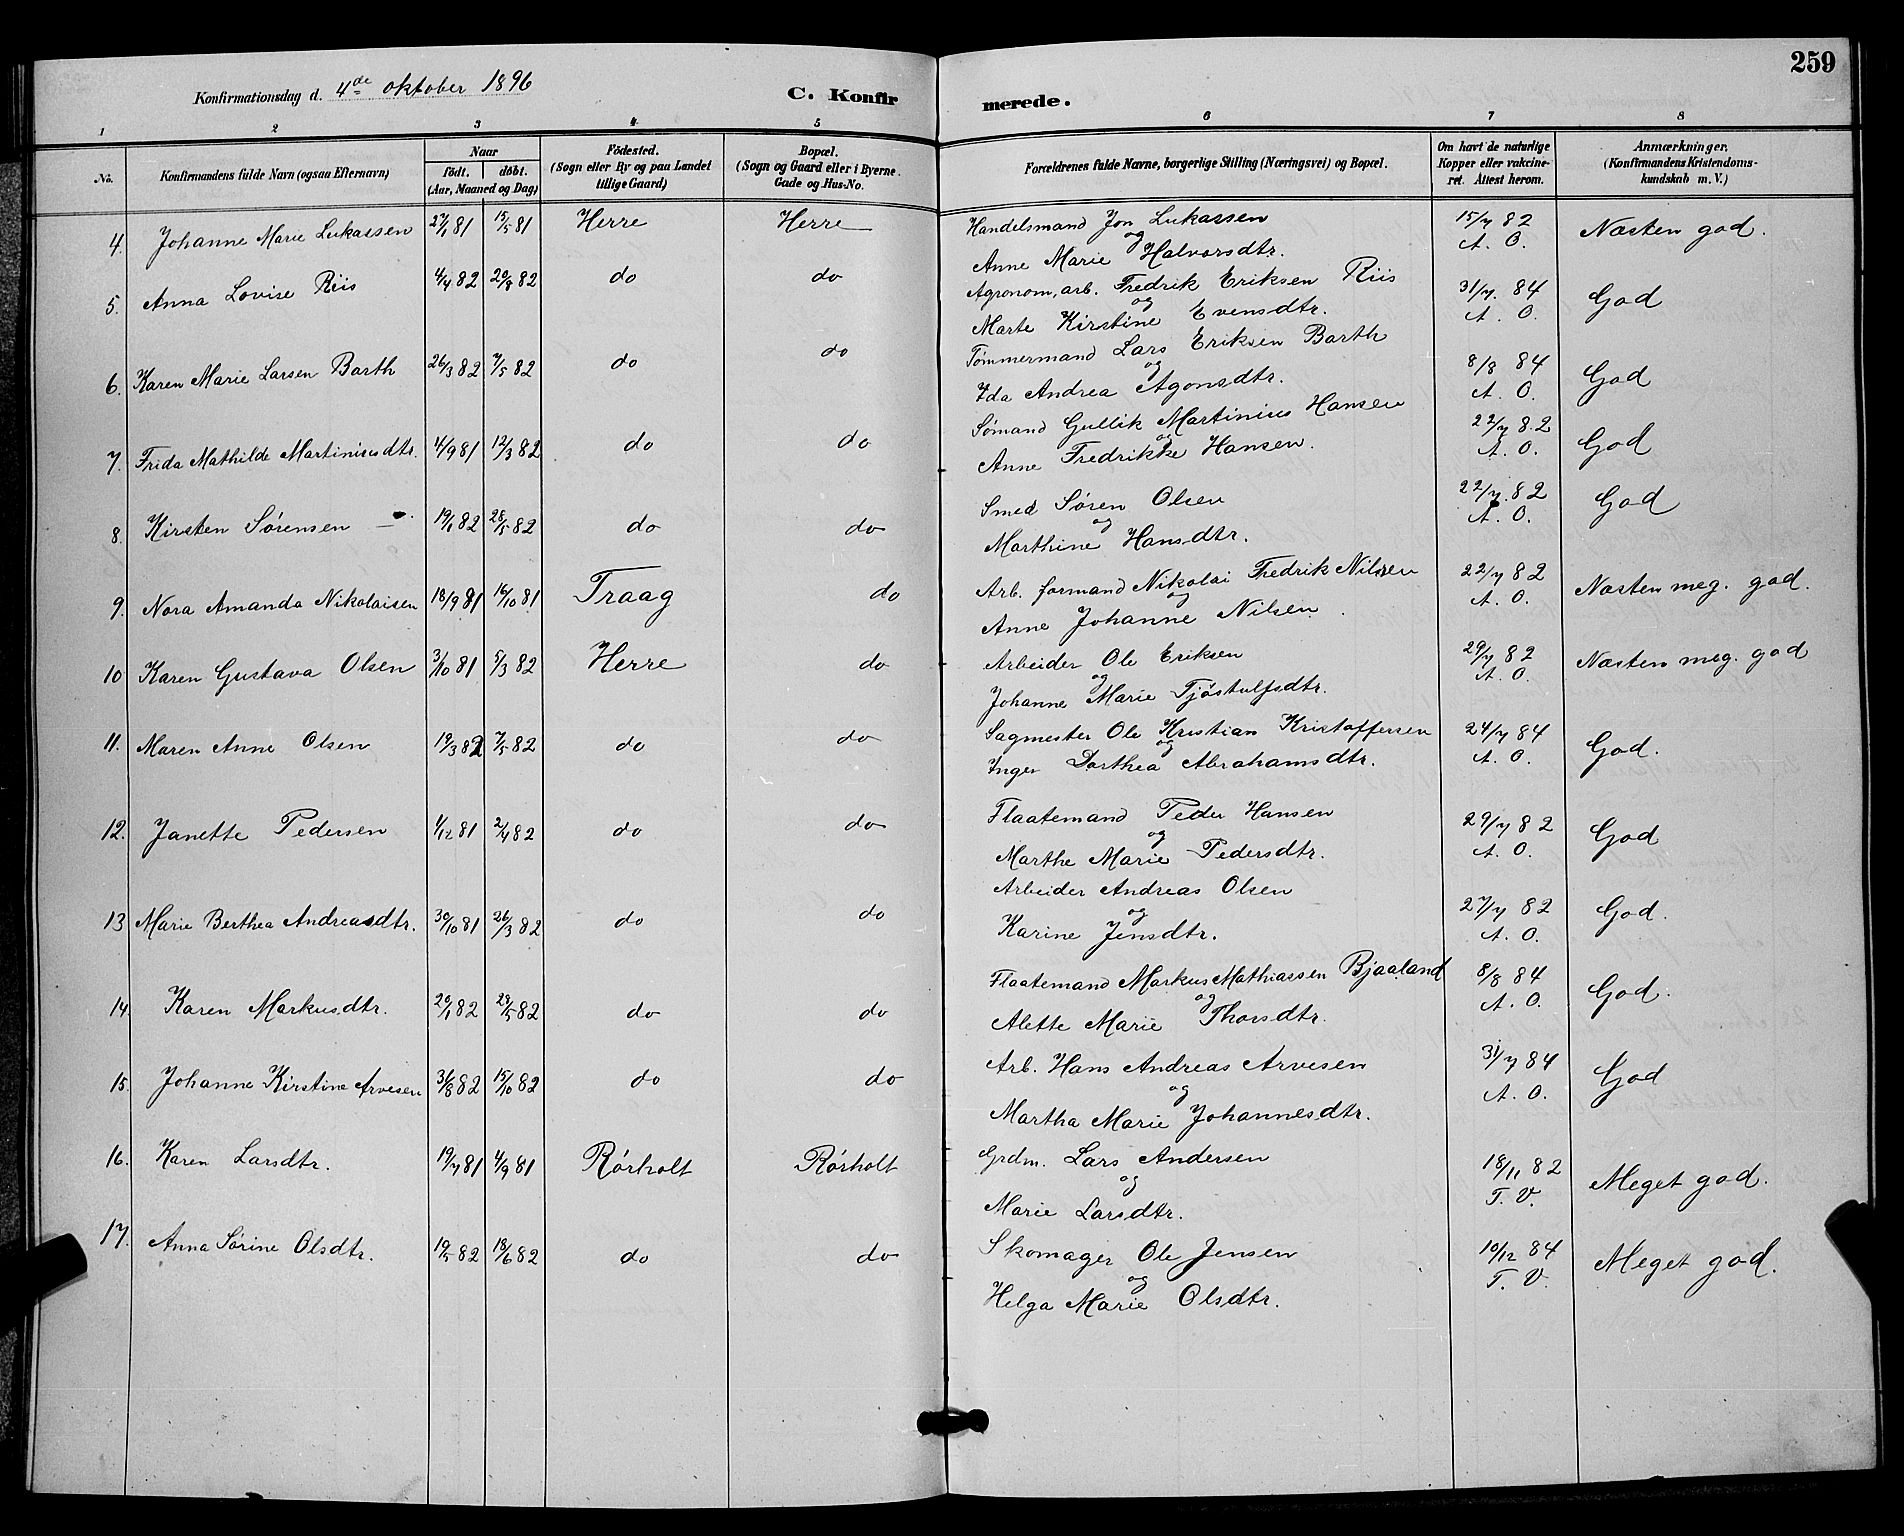 259
Konfirmationsdag d. 4de oktober 1896 C. Konfirmerede.
1 2 3 4 5 6 7 8
No. Konfirmandens fulde Navn (ogsaa Efternavn) Naar født. døbt. (Aar, Maaned og Dag) Födested. (Sogn eller By og paa Landet tillige Gaard) Bopæl. (Sogn og Gaard eller i Byerne Gade og Hus-No. Forældrenes fulde Navne, borgerlige Stilling (Næringsvei) og Bopæl. Om havt de naturlige Kopper eller vakcineret. Attest herom. Anmærkninger. (Konfirmandens Kristendomskundskab m. V.)
4. Johanne Marie Lukassen 27/1 81 15/5 81 Herre Herre Handelsmand Jon Lukassen 15/7 82 Næsten god.
og A. O.
Anne Marie Halvorsdtr.
5. Anna Lovise Riis 4/4 82 20/8 82 do do Agronom, arb. Fredrik Eriksen Riis 31/7. 84 God
og A. O.
Marte Kirstine Evensdtr.
6. Karen Marie Larsen Barth 26/3 82 7/5 82 do do Tømmermand Lars Eriksen Barth 8/8 84 God
og A. O.
Ida Andrea Agonsdtr.
7. Frida Mathilde Martiniusdtr. 4/9 81 12/3 82 do do Sømand Gullik Martinius Hansen 22/7 82 God
og A. O.
Anne Fredrikke Hansen.
8. Kirsten Sørensen 19/1 82 28/5 82 do do Smed Søren Olsen 22/7. 82 God
og A. O.
Marthine Hansdtr.
9. Nora Amanda Nikolaisen 18/9 81 16/10 81 Traag do Arb. formand Nikolai Fredrik Nilsen 22/7 82 Næsten meg. god.
og A. O.
Anne Johanne Nilsen.
10 Karen Gustava Olsen 3/10 81 5/3 82 Herre do Arbeider Ole Eriksen 29/7 82 Næsten meg. god
og A. O.
Johanne Marie Tjøstulfsdtr.
11. Maren Anne Olsen 19/3 82 7/5 82 do do Sagmester Ole Kristian Kristoffersen 24/7 84 God.
og A. O.
Inger Dorthea Abrahamsdtr.
12. Janette Pedersen 1/12 81 2/4 82 do do Flaatemand Peder Hansen 29/7 82 God
og A. O.
Marthe Marie Pedersdtr.
13 Marie Berthea Andreasdtr. 30/10 81 26/3 82 do do Arbeider Andreas Olsen 27/7 82 God.
og A. O.
Karine Jensdtr.
14. Karen Markusdtr. 20/1 82 29/5 82 do do Flaatemand Markus Mathiassen Bjaaland 8/8 84 God.
og A. O.
Alette Marie Thorsdtr.
15. Johanne Kirstine Arvesen 31/8 82 15/10 82 do do Arb. Hans Andreas Arvesen 31/7 84 God
og A. O.
Martha Marie Johannesdtr.
16. Karen Larsdtr. 19/7 81 4/9 81 Rørholt Rørholt Grdm. Lars Andersen 18/11 82 Meget god.
og T. V.
Marie Larsdtr.
17. Anna Sørine Olsdtr. 19/5 82 18/6 82 do do Skomager Ole Jensen 10/12 84 Meget god.
og T. V.
Helga Marie Olsdtr.